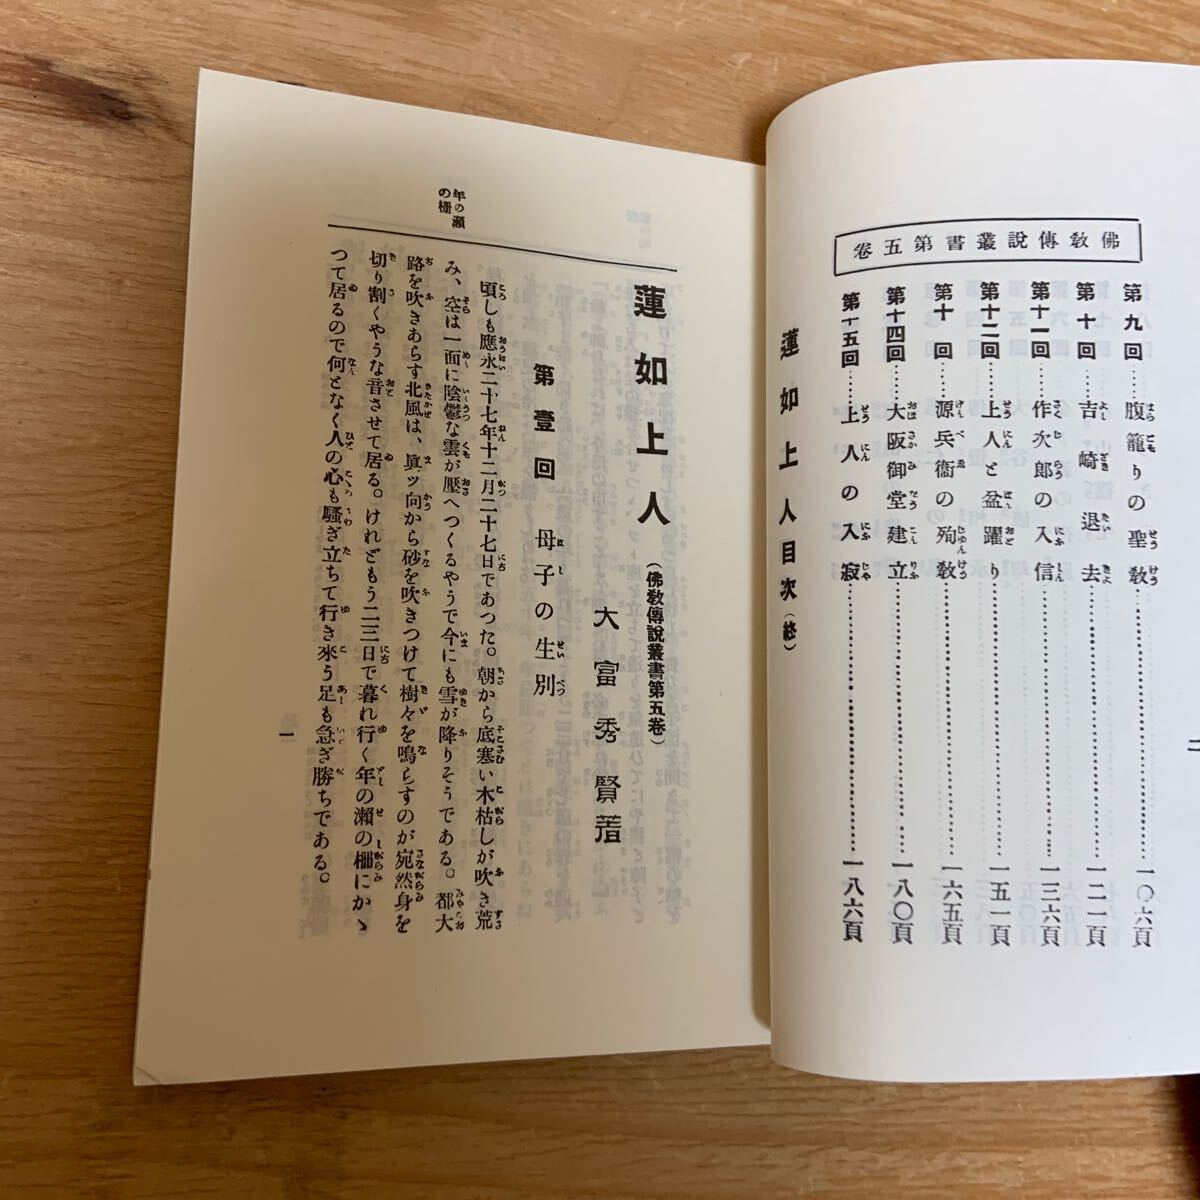 佛敎傳說叢書第五卷
第九回……腹籠りの聖敎……一〇六頁
第十回……吉崎退去……一二一頁
第十一回……作次郎の入信……一三六頁
第十二回……上人と盆躍り……一五一頁
第十 回……源兵衞の殉敎……一六五頁
第十四回……大阪御堂建立……一八〇頁
第十五回……上人の入寂……一八六頁
蓮如上人目次(終)
二
年の瀬
の柵
蓮如上人(佛敎傳說叢書第五卷)
大富秀賢著
第壹回 母子の生別
頃しも應永二十七年十二月二十七日であつた。朝から底寒い木枯しが吹き荒
み、空は一面に陰鬱な雲が壓へつくるやうで今にも雪が降りそうである。都大
路を吹きあらす北風は、眞ッ向から砂を吹きつけて樹々を鳴らすのが宛然身を
切り割くやうな音させて居る。けれどもう二三日で暮れ行く年の瀬の柵にかゝ
つて居るので何となく人の心も騷ぎ立ちて行き來う足も急ぎ勝ちである。
一